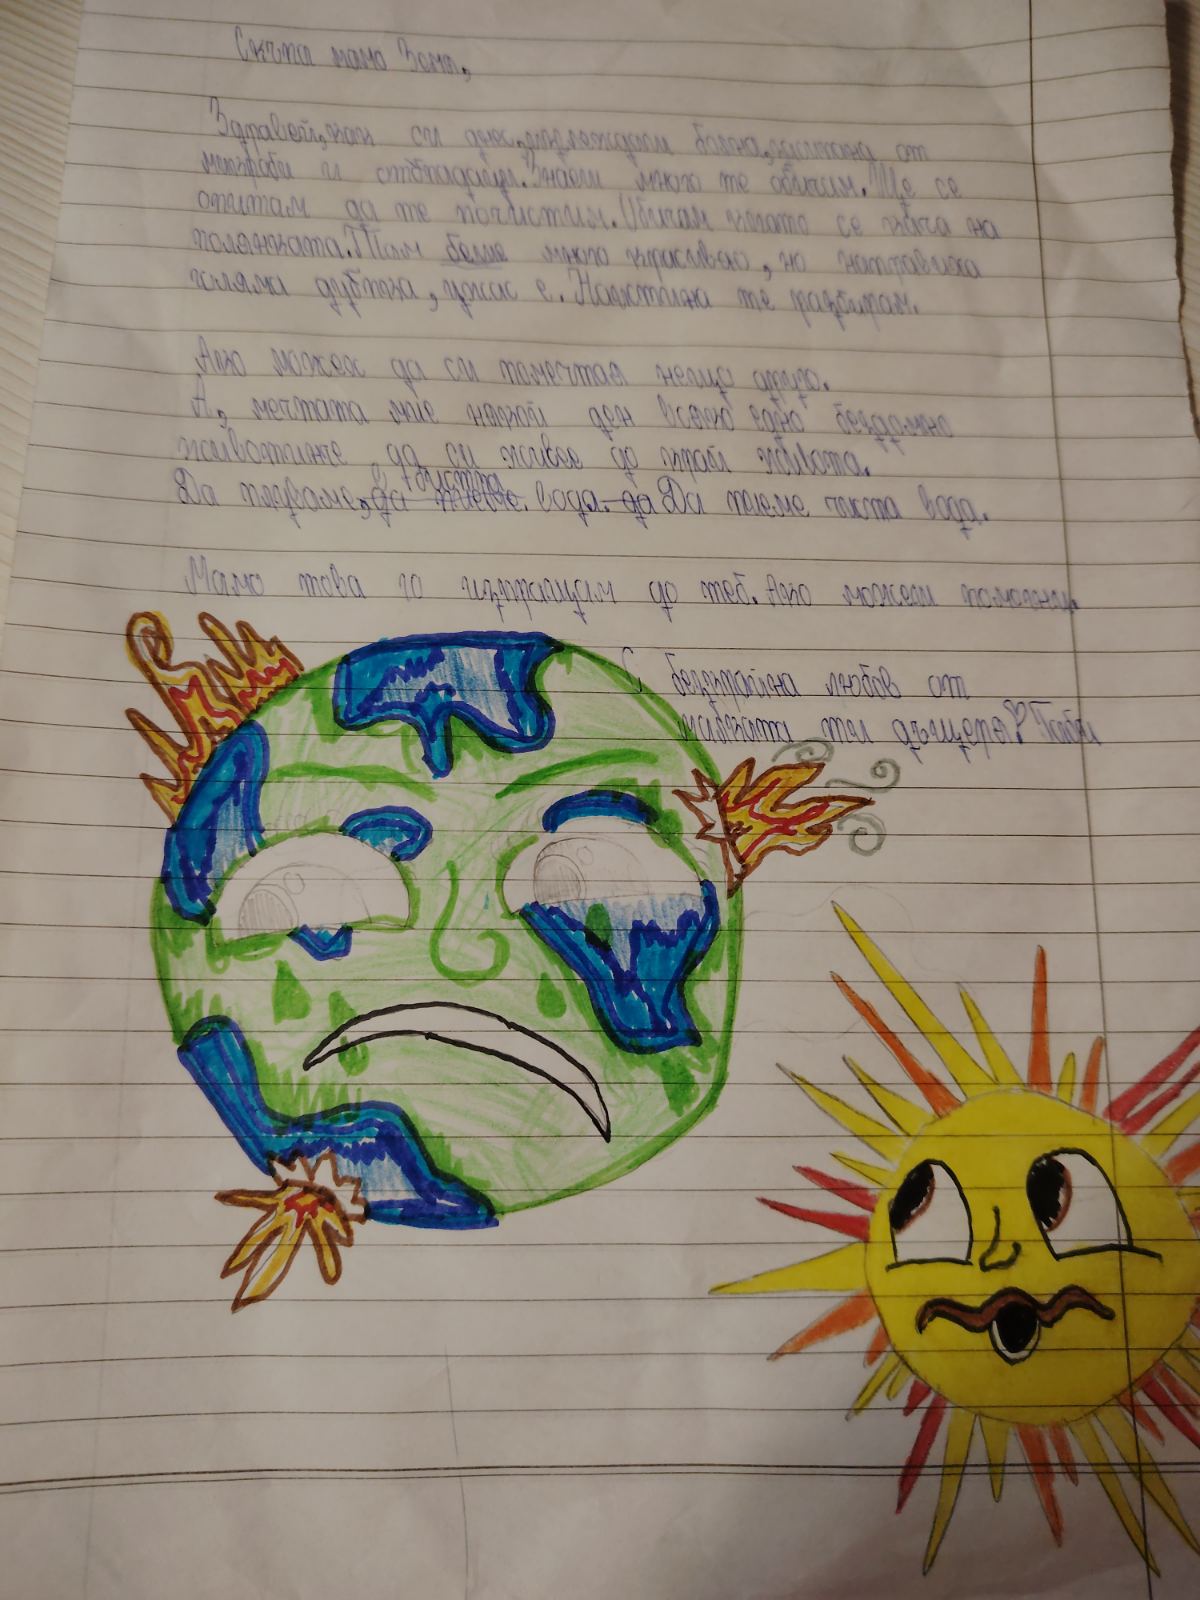 Скъпа мамо Земя,
Здравей, как си днес, изглеждаш болна, от
микроби и отпадъци. Знаеш много те обичам. Ще се
опитам да те почистим. Обичам когато се кача на
полянката. Там беше много красиво, но направиха
голяма дупка, ужас е. Наистина те разбирам.
Ако можех да си помечтая нещо друго.
А, мечтата ми е някой ден всяко едно бездомно
животинче да си живее до край живота.
Да плуваме, да пием в бистра вода. да Да пием чиста вода.
Мамо това го изпращам до теб. Ако можеш помогни.
С безкрайна любов от
милката ти дъщеря♡ Габи